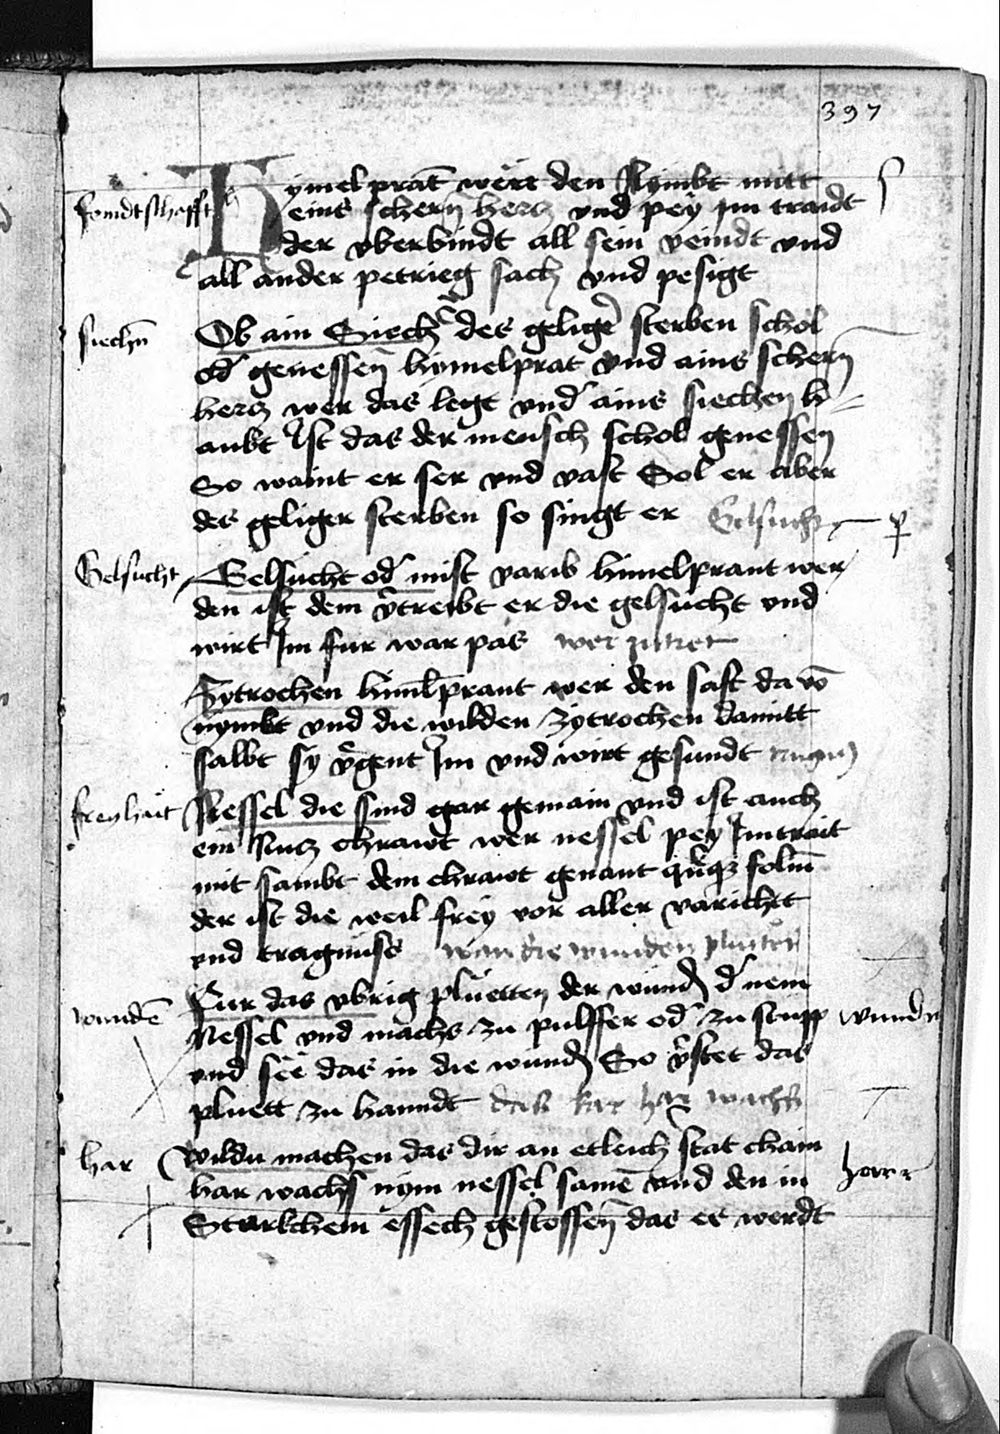 397
Hymelprāt wer den Nymbt mitt
feindtschafft
eins schern hercz vnd pey im traidt
der vberbindt all sein veindt vnd
all ander petrieg sach vnd pesigt
siechn̄
Ob ain Siech des geliger sterben schol
od genessen hymelprat vnd ains schern
hercz wer das legt vnd ains siechen h=
aubt Ist das der mensch schol genessen
So waint er ser vnd vast Sol er aber
des geliger sterben so singt er Gelsucht
Gelsucht
Gelsucht od mist varib himelprant wer
den ist dem v̄treibt er die gelsucht vnd
wirt Im fur war pas
Zytrochen himlprant wer den saft da vō
nymbt vnd die wilden zytrochen damitt
salbt sy v̄gent Im vnd wirt gesundt
freyhait
Nessel die sind gar gemain vnd ist auch
ein Nucz chrawt wer nessel pey Im trait
mit sambt dem chrawt genant foliū
der ist die weil frey vor aller varicht
vnd tragnuss wan die wunden plutten
wundē
Fur das vbrig pluetten der wund d nem
Nessel vnd machs zu pulffer od zu stupp
wundn
vnd see das in die wund So v̄stet das
pluett zu hanndt das kar har wachs
har
Wildu machen das dir an etleich stat chain
har wachs nym nessel samē vnd den in
harr
Starkchem essech gestossen das es werdt